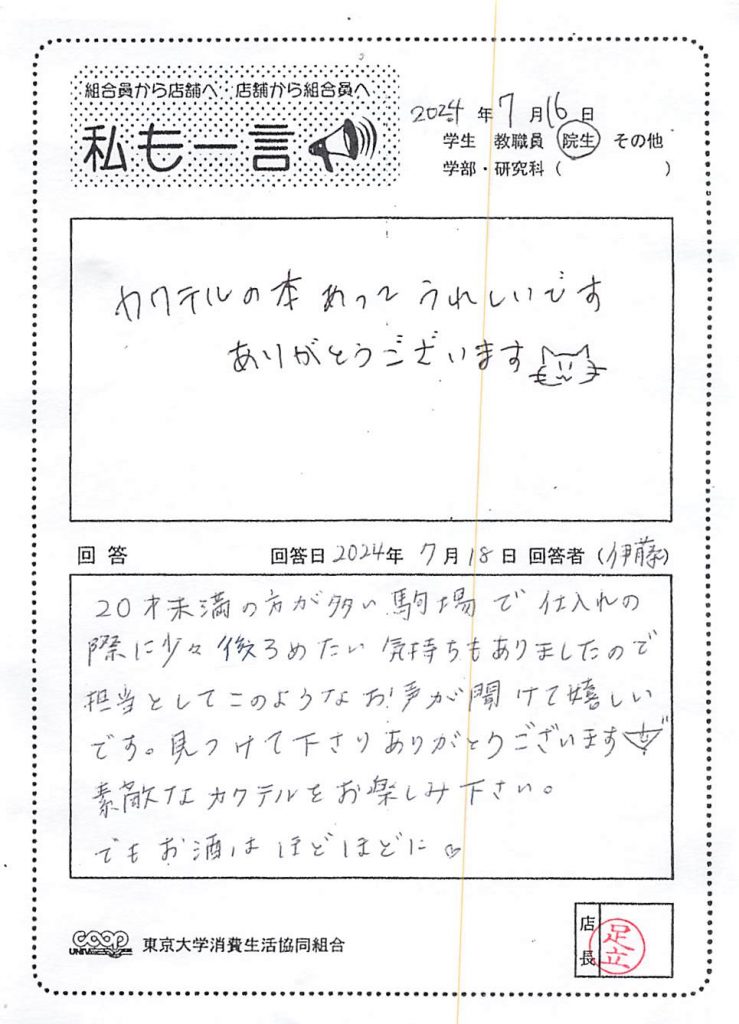 組合員から店舗へ 店舗から組合員へ
私も一言
2024年7月16日
学生 教職員 院生 その他
学部・研究科( )
カクテルの本あってうれしいです
ありがとうございます
回答 回答日2024年7月18日 回答者(伊藤)
20才未満の方が多い駒場で仕入れの
際に少々後ろめたい気持ちもありましたので
担当としてこのようなお声が聞けて嬉しい
です。見つけて下さりありがとうございます
素敵なカクテルをお楽しみ下さい。
でもお酒はほどほどに♡
店長
足立
coop
UNIV
東京大学消費生活協同組合